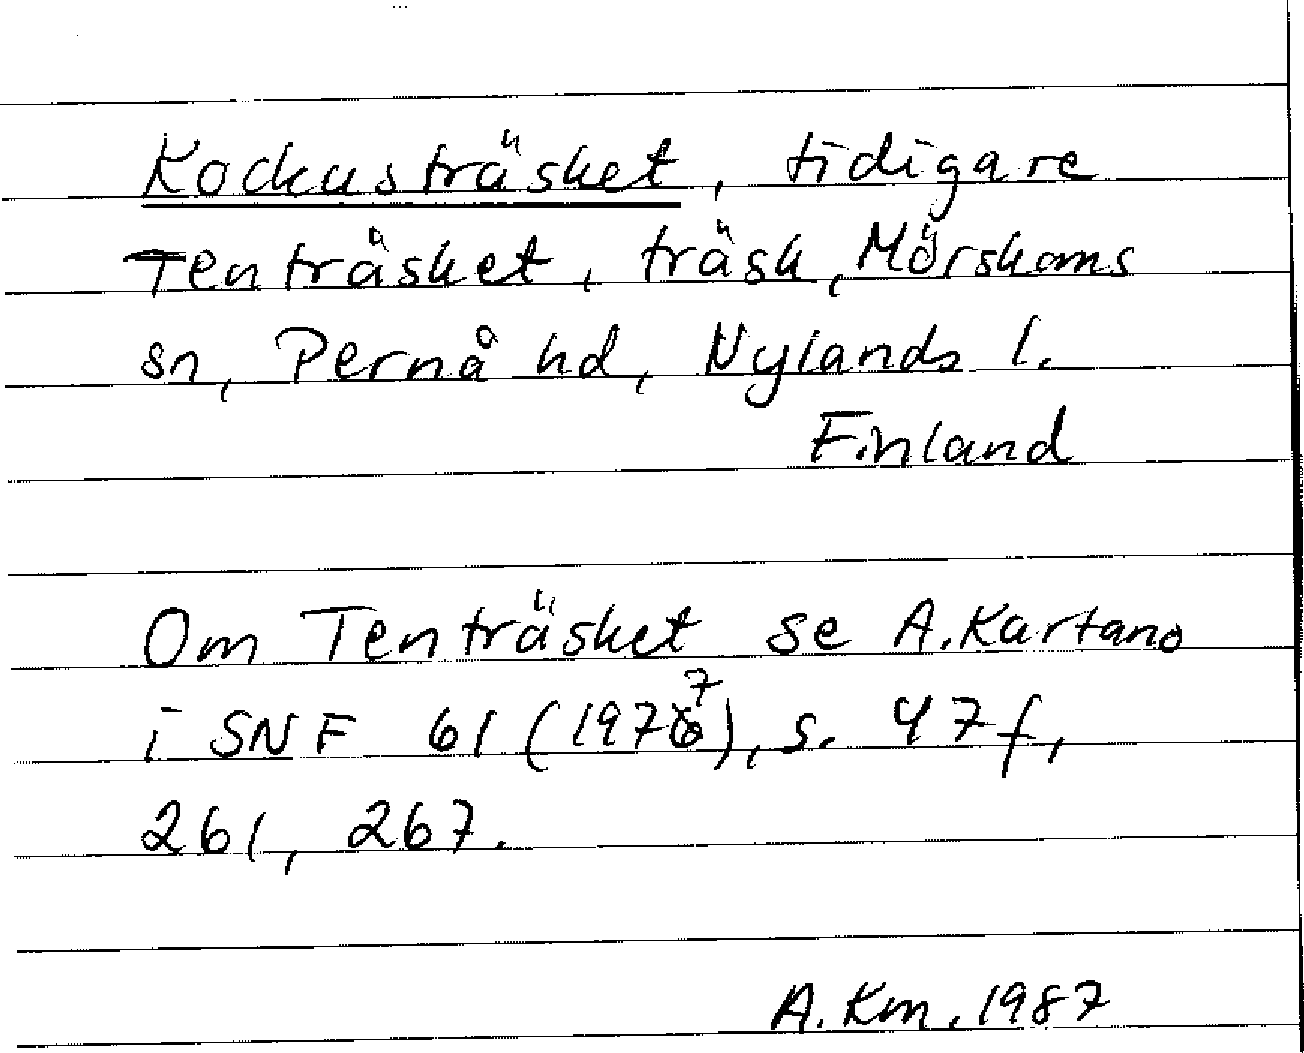 Kockusträsket, tidigare
Tenträsket, träsk, Mörskoms
sn, Pernå hd, Nylands l.
Finland
Om Tenträsket se A. Kartano
i SNF 61 (1977), s. 47 f,
261, 267.
A. Km. 1987